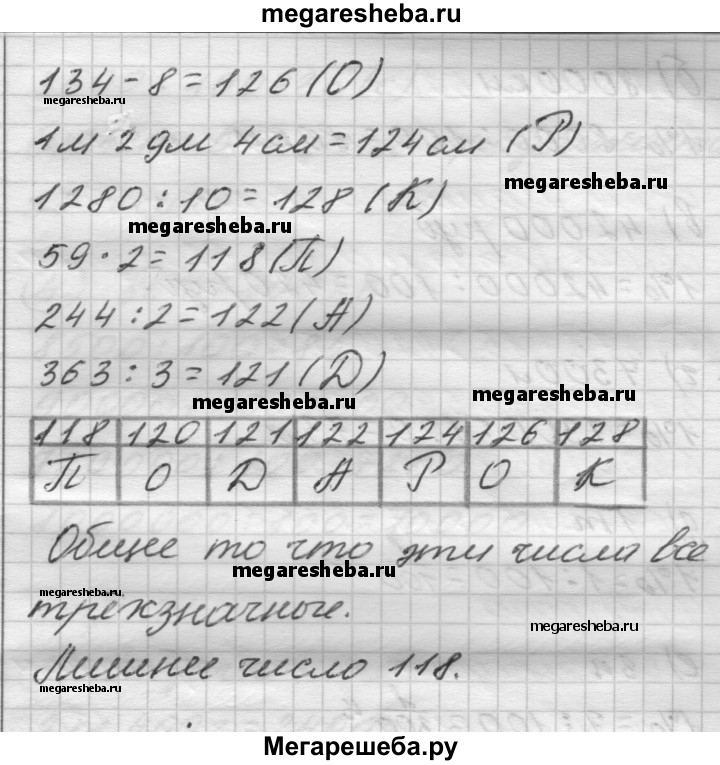 megaresheba.ru
134 - 8 = 126 (О)
megaresheba.ru
1 м 2 дм 4 см = 124 см (Р)
megaresheba.ru
1280 : 10 = 128 (К)
megaresheba.ru
59 · 2 = 118 (П)
244 : 2 = 122 (А)
363 : 3 = 121 (Д)
megaresheba.ru
megaresheba.ru
118 120 121 122 124 126 128
П О Д А Р О К
Общее то что эти числа все
megaresheba.ru
megaresheba.ru
трехзначные.
megaresheba.ru
Лишнее число 118.
megaresheba.ru
Мегарешеба.ру